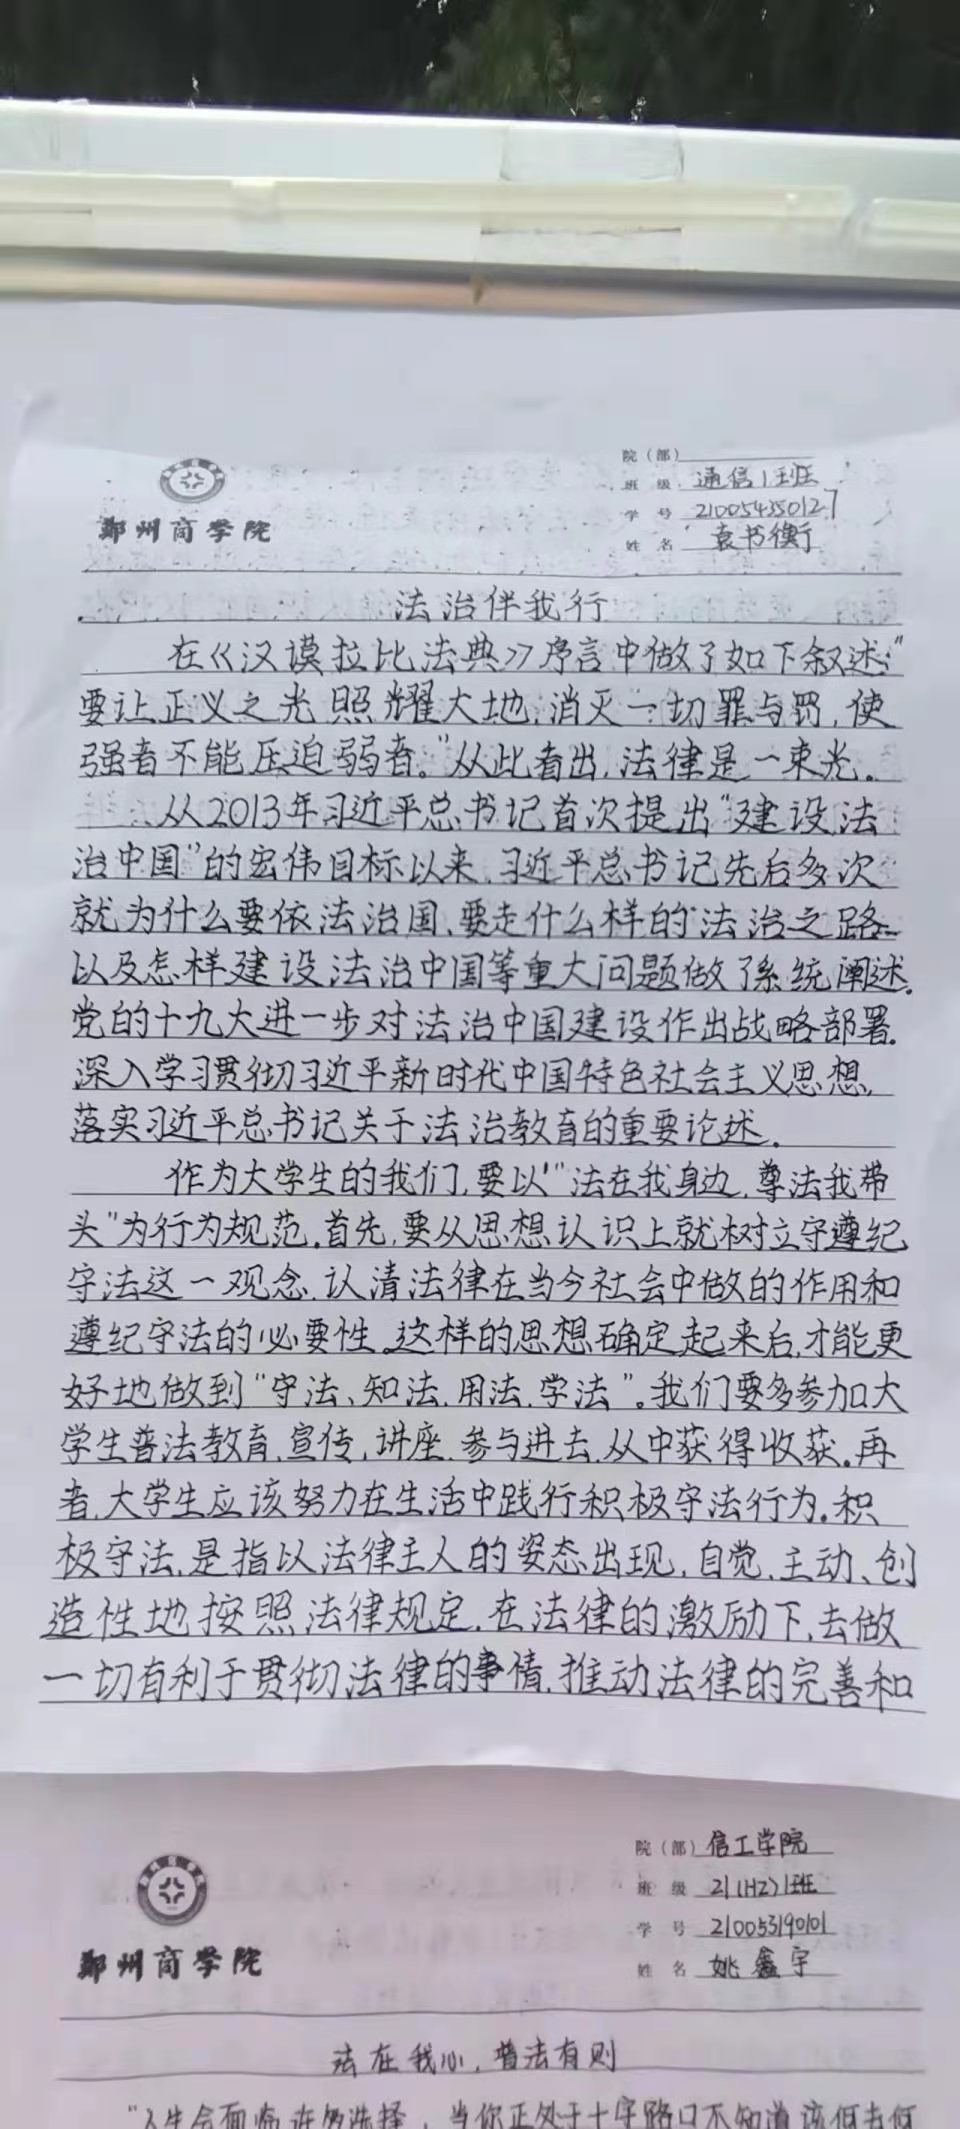 院（部）
班 级 通信1班
学 号 210054350127
郑州商学院
姓 名 袁书衡
法治伴我行
在《汉谟拉比法典》序言中做了如下叙述："
要让正义之光照耀大地,消灭一切罪与罚,使
强者不能压迫弱者。"从此看出,法律是一束光。
从2013年习近平总书记首次提出"建设法
治中国"的宏伟目标以来,习近平总书记先后多次
就为什么要依法治国、要走什么样的法治之路
以及怎样建设法治中国等重大问题做了系统阐述。
党的十九大进一步对法治中国建设作出战略部署。
深入学习贯彻习近平新时代中国特色社会主义思想,
落实习近平总书记关于法治教育的重要论述。
作为大学生的我们,要以"法在我身边,尊法我带
头"为行为规范。首先,要从思想认识上就树立守遵纪
守法这一观念,认清法律在当今社会中做的作用和
遵纪守法的必要性。这样的思想确定起来后,才能更
好地做到"守法、知法,用法,学法"。我们要多参加大
学生普法教育,宣传,讲座,参与进去,从中获得收获。再
者,大学生应该努力在生活中践行积极守法行为。积
极守法,是指以法律主人的姿态出现,自觉,主动、创
造性地按照法律规定,在法律的激励下,去做
一切有利于贯彻法律的事情,推动法律的完善和
院（部） 信工学院
班 级 21(HZ)1班
学 号 210053190101
郑州商学院
姓 名 姚鑫宇
法在我心,普法有则
"人生会面临许多选择,当你正处于十字路口不知道该何去何